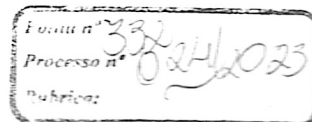 Folha nº 332
Processo nº 024/2023
Rubrica: